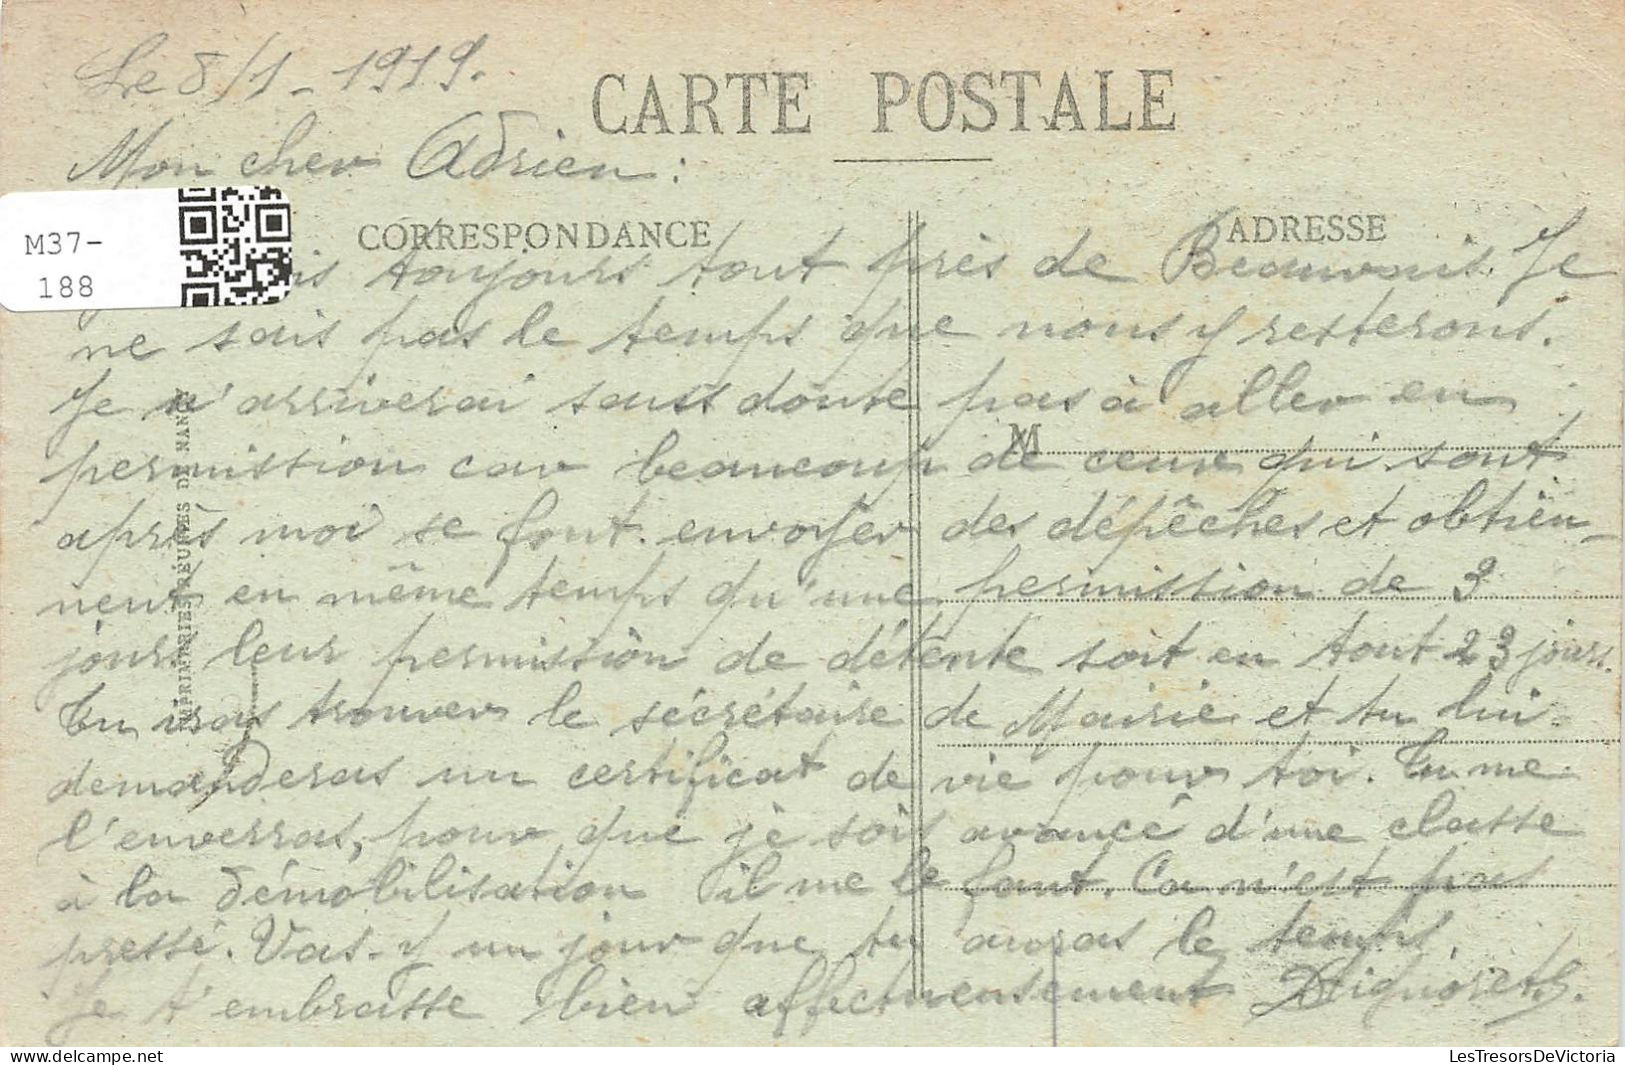 Le 8/1-1919.
CARTE POSTALE
Mon cher Adrien :
CORRESPONDANCE
ADRESSE
M37-
188
suis toujours tout près de Beauvais. Je
ne sais pas le temps que nous y resterons.
Je n'arriverai sans doute pas à aller en
permission car beaucoup de ceux qui sont
M
après moi se font envoyer des dépêches et obtien-
nent en même temps qu'une permission de 3
jours leur permission de détente soit en tout 23 jours.
Tu vas trouver le sécrétaire de Mairie et tu lui
demanderas un certificat de vie pour toi. Tu me
l'enverras, pour que je sois avancé d'une classe
à la démobilisation il me le faut. Ca n'est pas
pressé. Vas-y un jour que tu auras le temps.
Je t'embrasse bien affectueusement
IMPRIMERIES RÉUNIES DE NANCY
LesTresorsDeVictoria
https://www.delcampe.net